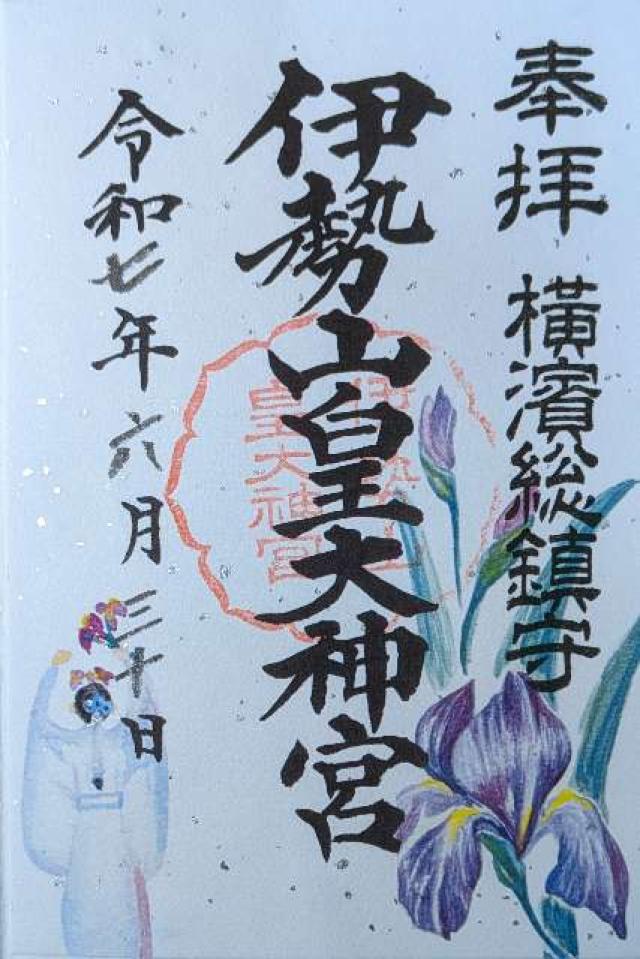 奉拝 横濱総鎮守
伊勢山皇大神宮
皇大神宮
令和七年六月三十日